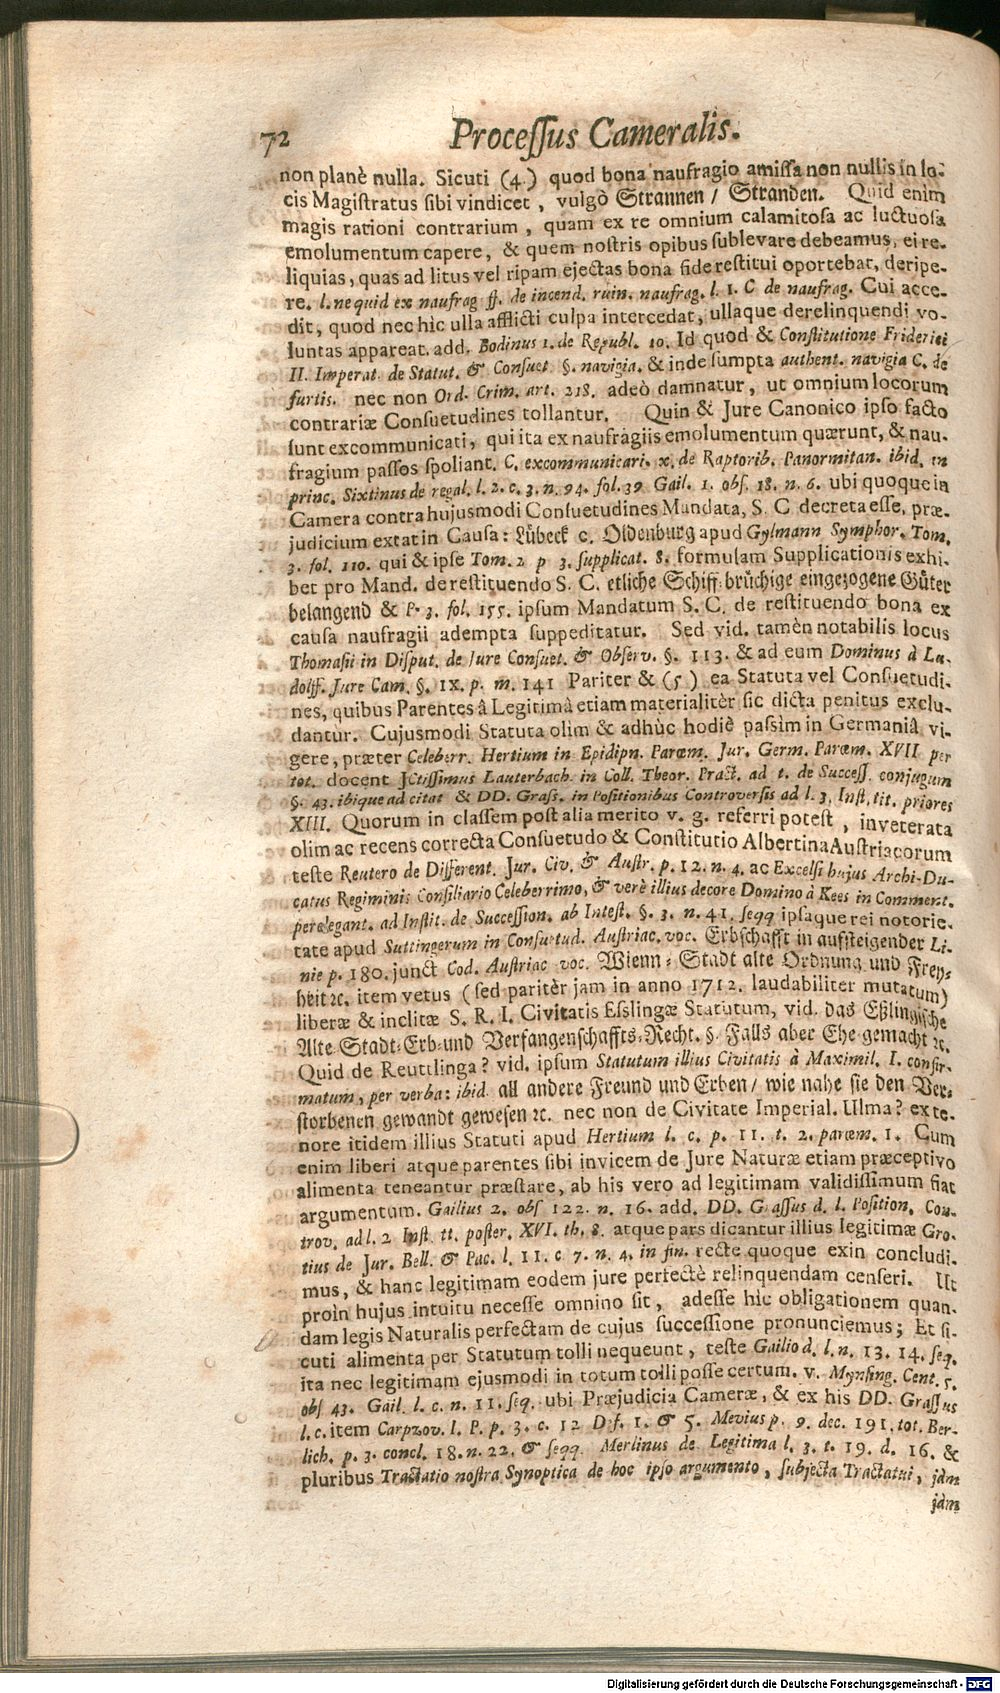 72 Processus Cameralis.
non planè nulla. Sicuti (4.) quod bona naufragio amissa non nullis in lo-
cis Magistratus sibi vindicet, vulgò Strannen / Stranden. Quid enim
magis rationi contrarium, quam ex re omnium calamitosa ac luctuosa
emolumentum capere, & quem nostris opibus sublevare debeamus, ei re-
liquias, quas ad litus vel ripam ejectas bona fide restitui oportebat, deripe-
re. l. ne quid ex naufrag ff. de incend. ruin. naufrag. l. 1. C de naufrag. Cui acce-
dit, quod nec hic ulla afflicti culpa intercedat, ullaque derelinquendi vo-
luntas appareat. add. Bodinus 1. de Republ. 10. Id quod & Constitutione Friderici
II. Imperat. de Statut. & Consuet §. navigia. & inde sumpta authent. navigia C. de
furtis. nec non Ord. Crim. art. 218. adeò damnatur, ut omnium locorum
contrariæ Consuetudines tollantur. Quin & Jure Canonico ipso facto
sunt excommunicati, qui ita ex naufragiis emolumentum quærunt, & nau-
fragium passos spoliant. C. excommunicari. x. de Raptorib. Panormitan. ibid. in
princ. Sixtinus de regal. l. 2. c. 3. n. 94. fol. 39 Gail. 1. obs. 18. n. 6. ubi quoque in
Camera contra hujusmodi Consuetudines Mandata, S. C decreta esse, præ-
judicium extat in Causa: Lübeck c. Oldenburg apud Gylmann Symphor. Tom.
3. fol. 110. qui & ipse Tom. 2 p 3. supplicat. 8. formulam Supplicationis exhi-
bet pro Mand. de restituendo S. C. etliche Schiff-brüchige eingezogene Güter
belangend & P. 3. fol. 155. ipsum Mandatum S. C. de restituendo bona ex
causa naufragii adempta suppeditatur. Sed vid. tamèn notabilis locus
Thomasii in Disput. de Jure Consuet. & Observ. §. 113. & ad eum Dominus à Lu-
dolff. Jure Cam. §. 1X. p. m. 141 Pariter & (5) ea Statuta vel Consuetudi-
nes, quibus Parentes â Legitimâ etiam materialitèr sic dicta penitus exclu-
dantur. Cujusmodi Statuta olim & adhùc hodiè passìm in Germaniâ vi-
gere, præter Celeberr. Hertium in Epidipn. Parœm. Jur. Germ. Parœm. XVII per
tot. docent JCtissimus Lauterbach. in Coll. Theor. Pract. ad t. de Success. conjugum
§. 43. ibique ad citat & DD. Grass. in Positionibus Controversis ad l. 3. Inst. tit. priores
XIII. Quorum in classem post alia merito v. g. referri potest, inveterata
olim ac recens correcta Consuetudo & Constitutio Albertina Austriacorum
teste Reutero de Different. Jur. Civ. & Austr. p. 12. n. 4. ac Excelsi hujus Archi-Du-
catus Regiminis Consiliario Celeberrimo, & verè illius decore Domino à Kees in Comment.
perelegant. ad Instit. de Succession. ab Intest. §. 3. n. 41. seqq ipsaque rei notorie-
tate apud Suttingerum in Consuetud. Austriac. voc. Erbschafft in aufsteigender Li-
nie p. 180. junct Cod. Austriac voc. Wienn-Stadt alte Ordnung und Frey-
heit ꝛc. item vetus (sed paritèr jam in anno 1712. laudabiliter mutatum)
liberæ & inclitæ S. R. I. Civitatis Esslingæ Statutum, vid. das Eßlingische
Alte Stadt-Erb und Verfangenschaffts-Recht. §. Falls aber Ehe gemacht ꝛc.
Quid de Reuttlinga? vid. ipsum Statutum illius Civitatis à Maximil. I. confir-
matum, per verba: ibid. all andere Freund und Erben / wie nahe sie den Ver-
storbenen gewandt gewesen ꝛc. nec non de Civitate Imperial. Ulma? ex te-
nore itidem illius Statuti apud Hertium l. c. p. 11. t. 2. parœm. 1. Cum
enim liberi atque parentes sibi invicem de Jure Naturæ etiam præceptivo
alimenta teneantur præstare, ab his vero ad legitimam validissimum fiat
argumentum. Gailius 2. obs 122. n. 16. add. DD. Grassus d. l. Position. Con-
trov. ad l. 2 Inst. tt. poster. XVI. th. 8. atque pars dicantur illius legitimæ Gro-
tius de Jur. Bell. & Pac. l. 11. c. 7. n. 4. in fin. recte quoque exin concludi-
mus, & hanc legitimam eodem jure perfectè relinquendam censeri. Ut
proìn hujus intuitu necesse omnino sit, adesse hic obligationem quan-
dam legis Naturalis perfectam de cujus successione pronunciemus; Et si-
cuti alimenta per Statutum tolli nequeunt, teste Gailio d. l. n. 13. 14. seq.
ita nec legitimam ejusmodi in totum tolli posse certum. v. Mynsing. Cent. 5.
obs 43. Gail. l. c. n. 11. seq. ubi Præjudicia Cameræ, & ex his DD. Grassus
l. c. item Carpzov. l. P. p. 3. c. 12 Def. 1. & 5. Mevius p. 9. dec. 191. tot. Ber-
lich. p. 3. concl. 18. n. 22. & seqq. Merlinus de Legitima l. 3. t. 19. d. 16. &
pluribus Tractatio nostra Synoptica de hoc ipso argumento, subjecta Tractatui, jam
jam
Digitalisierung gefördert durch die Deutsche Forschungsgemeinschaft - DFG